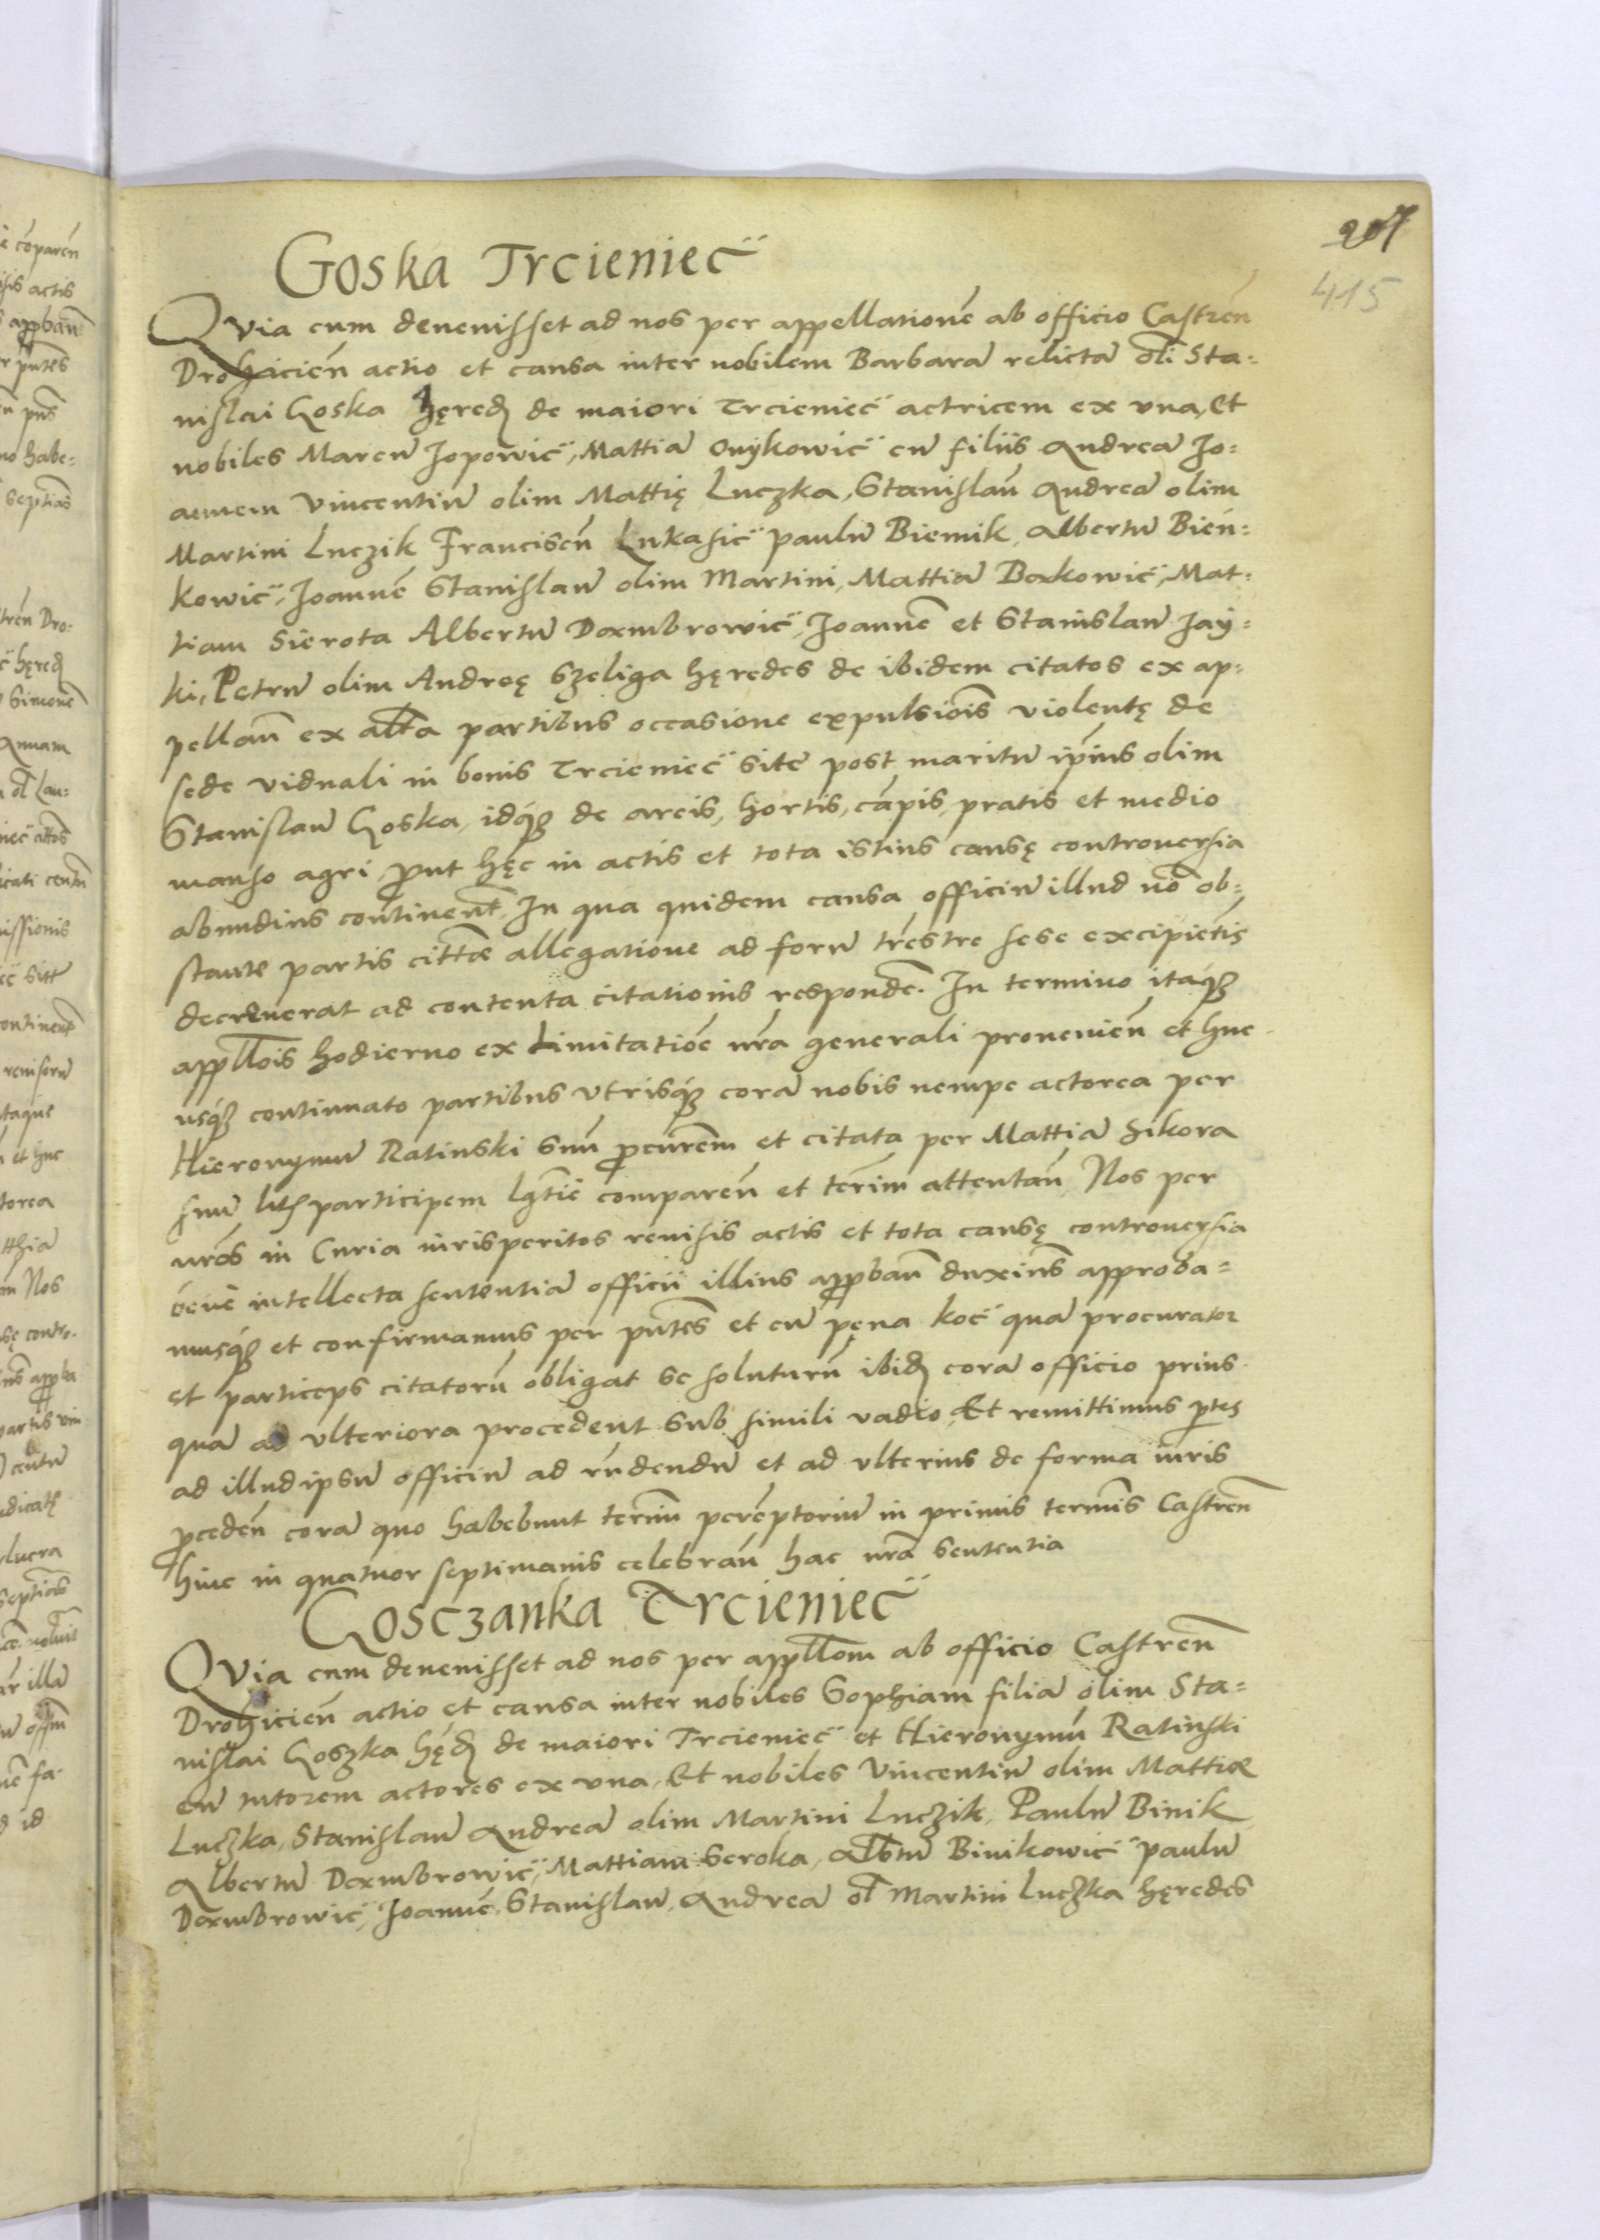 207
415
Goska Trcieniec̈
Quia cum deuenisset ad nos per appellationē ab officio Castreñ
Drohicień actio et causa inter nobilem Barbarā relictā oli Sta=
nislai Goska hęred de maiori Trcieniec̈ actricem ex vna, Et
nobiles Marcū Jopowic̈, Mattiā Onÿkowic̈ cū filiis Andreā Jo=
annem Vincentiū olim Mattię Luczka, Stanislaū Andreā olim
Martini Luczik Franciscū Lukasic̈ paulū Biemik, Albertū Bień=
kowic̈, Joannē Stanislaū olim Martini, Mattiā Boxkowic̈, Mat=
tiam Sierota Albertū Doxmbrowic̈, Joannē et Stanislaū Jay=
ki, Petrū olim Andreę Szeliga hęredes de ibidem citatos ex ap=
pellañ ex altā partibus occasione expulsiōis violentę de
sede viduali in bonis Trcieniec̈ site post maritū ipsius olim
Stanislaū Goska, idq́ʒ de areis, hortis, cāpis, pratis et medio
manso agri prout hęc in actis et tota istius causę controuersia
abundius continent̄. In qua quidem causa officiū illud nō ob=
stante partis cittæ allegatione ad forū trēstre sese excipiētis
decreuerat ad contenta citationis respondē. In termino itaq́ʒ
appllōis hodierno ex Limitatiōe nrā generali proueniēn et huc
usq́ʒ continuato partibus vtrisq́ʒ corā nobis nempe actorea per
Hieronymū Ratinski suū procurēm et citata per Mattiā Sikora
suū litis participem lgttīe comparēn et tērim attentāñ, Nos per
nrōs in Curia iurisperitos reuisis actis et tota causę controuersia
bēnē intellecta sententiā officii illius approbañ duximꝰ approba=
musq́ʒ et confirmamus per pntēs et cū pęna koc̈ quā procurator
et particeps citatorū obligat se soluturū ibid corā officio prius
quā ad vlteriora procedent sub simili vadio, Et remittimus prtes
ad illud ipsū officiū ad rn̄dendū et ad vlterius de forma iuris
proceden corā quo habebunt terim perēptoriū in primis terminis Castreñ
hinc in quatuor septimanis celebrañ hac nrā sententia
Gosczanka Trcieniec̈
Quia cum deuenisset ad nos per appllom ab officio Castreñ
Drohicień actio et causa inter nobiles Sophiam filiā olim Sta=
nislai Goszka hęd de maiori Trcieniec̈ et Hieronymū Ratinski
eiū tutorem actores ex vna, Et nobiles Vincentiū olim Mattiæ
Luczka, Stanislaū Andreā olim Martini Luczik, Paulū Binik
Albertū Doxmbrowic̈, Mattiam Seroka, Albtū Binikowic̈ paulū
Doxmbrowic̈, Joannē, Stanislaū, Andreā ol Martini Luczka hęredes